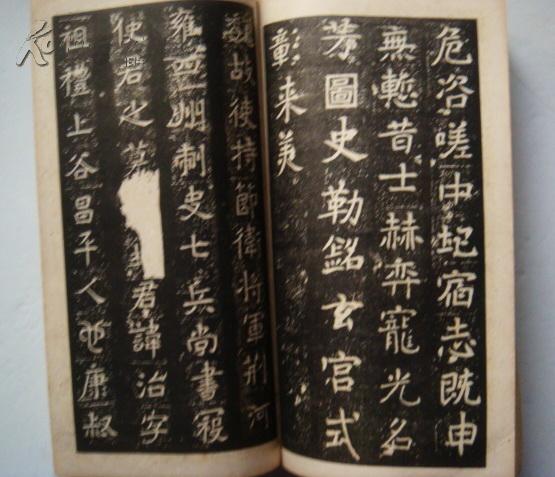 危咨嗟中圮宿志既申
無慙昔士赫弈寵光名
芳圖史勒銘玄宫式
彰来美
魏故使持節衛将軍荆河
雍州刺史七兵尚書寇
使君之墓君諱治字
祖禮上谷昌平人也康叔